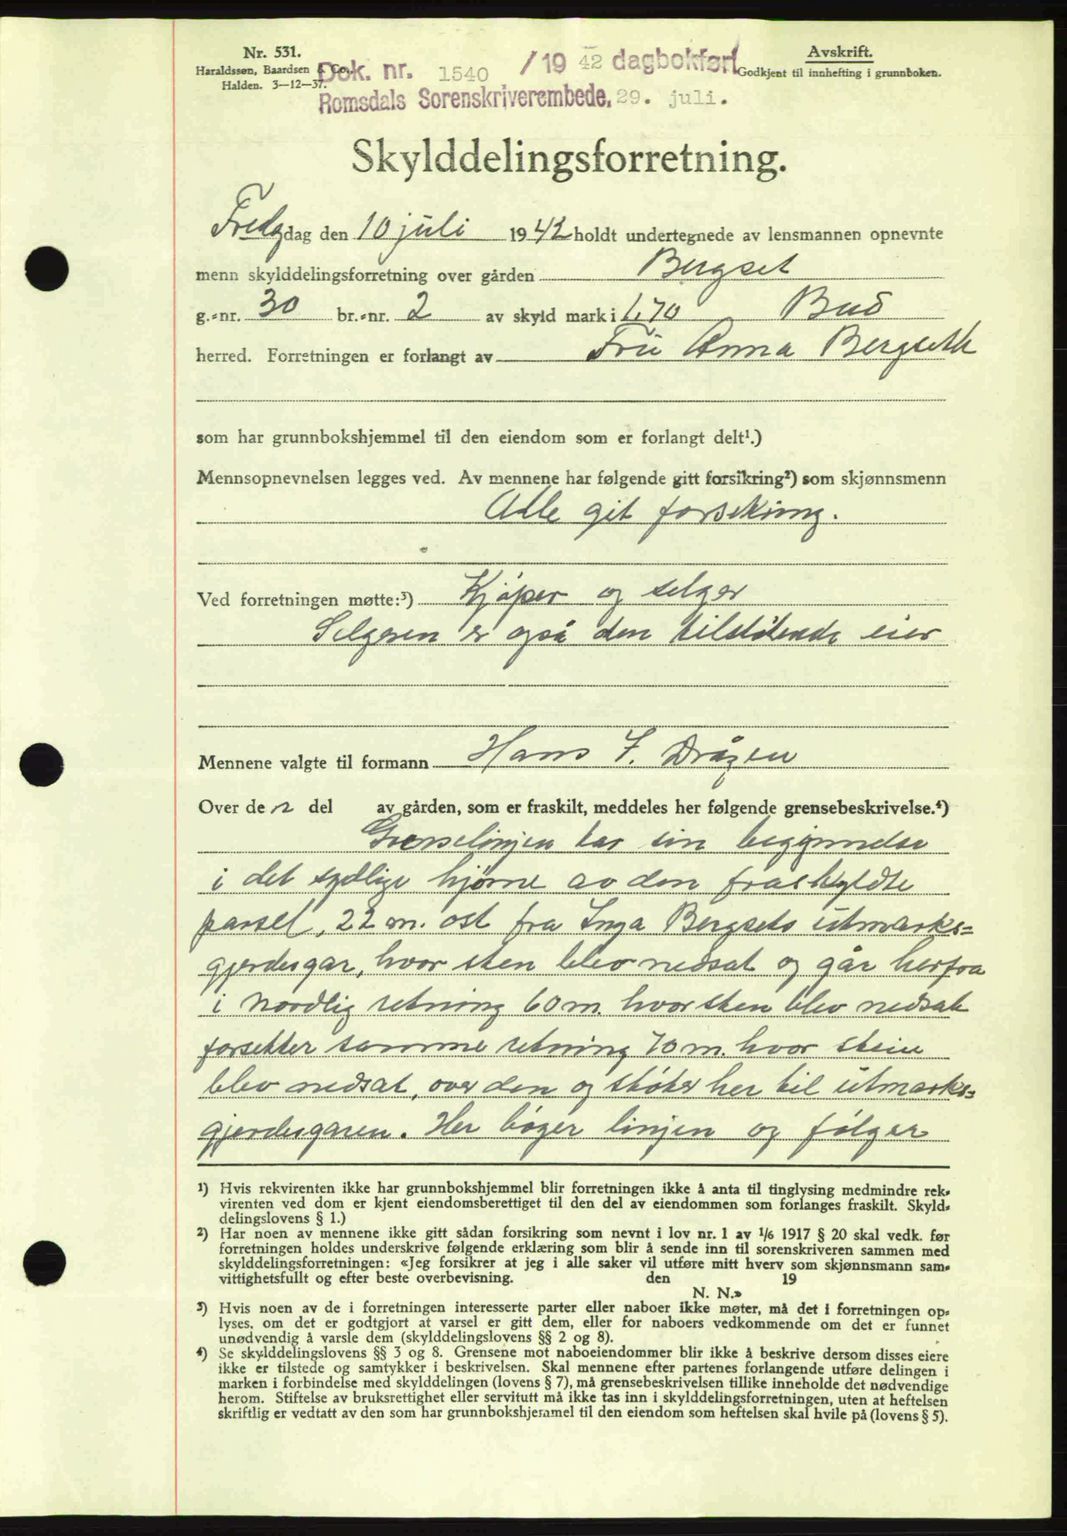 Nr. 531.
Haraldssøn, Baardsen & Co.
Halden. 3—12—37.
Dok. nr. 1540 /19 42 dagbokført
Romsdals Sorenskriverembede, 29. juli.
Avskrift.
Godkjent til innhefting i grunnboken.
Skylddelingsforretning.
Fredag dag den 10 juli 1942 holdt undertegnede av lensmannen opnevnte
menn skylddelingsforretning over gården Bergset
g.-nr. 30 br.-nr. 2 av skyld mark i 1.70 Bud
herred. Forretningen er forlangt av Fru Anna Bergseth
som har grunnbokshjemmel til den eiendom som er forlangt delt¹.)
Mennsopnevnelsen legges ved. Av mennene har følgende gitt forsikring²) som skjønnsmenn
Alle git forsikring.
Ved forretningen møtte:³) Kjøper og selger
Selgeren er også den tilstøtende eier
Mennene valgte til formann Hans F. Drågen
Over de n del av gården, som er fraskilt, meddeles her følgende grensebeskrivelse.⁴)
Grenselinjen tar sin begynnelse
i det sydlige hjørne av den fraskyldte
parsel, 22 m. ost fra Inga Bergsets utmarks-
gjerdesgar, hvor sten blev nedsat og går herfra
i nordlig retning 60 m. hvor sten blev nedsat
forsetter samme retning 70 m. hvor stein
blev nedsat, over den og støter her til utmarks-
gjerdesgaren. Her bøger linjen og følger
¹) Hvis rekvirenten ikke har grunnbokshjemmel blir forretningen ikke å anta til tinglysing medmindre rek-
virenten ved dom er kjent eiendomsberettiget til den del av eiendommen som forlanges fraskilt. Skyld-
delingslovens § 1.)
²) Har noen av mennene ikke gitt sådan forsikring som nevnt i lov nr. 1 av ¹/₆ 1917 § 20 skal vedk. før
forretningen holdes underskrive følgende erklæring som blir å sende inn til sorenskriveren sammen med
skylddelingsforretningen: «Jeg forsikrer at jeg i alle saker vil utføre mitt hverv som skjønnsmann sam-
vittighetsfullt og efter beste overbevisning. den 19
N. N.»
³) Hvis noen av de i forretningen interesserte parter eller naboer ikke møter, må det i forretningen op-
lyses, om det er godtgjort at varsel er gitt dem, eller for naboers vedkommende om det er funnet
unødvendig å varsle dem (skylddelingslovens §§ 2 og 8).
⁴) Se skylddelingslovens §§ 3 og 8. Grensene mot naboeiendommer blir ikke å beskrive dersom disses eiere
ikke er tilstede og samtykker i beskrivelsen. Skal mennene efter partenes forlangende utføre delingen i
marken i forbindelse med skylddelingen (lovens § 7), må grensebeskrivelsen tillike inneholde det nødvendige
herom. Stiftelse av bruksrettighet eller servitutt må ikke tas inn i skylddelingsforretningen, uten at heftelsen
skriftlig er vedtatt av den som har grunnbokshjemmel til den eiendom som heftelsen skal hvile på (lovens § 5).